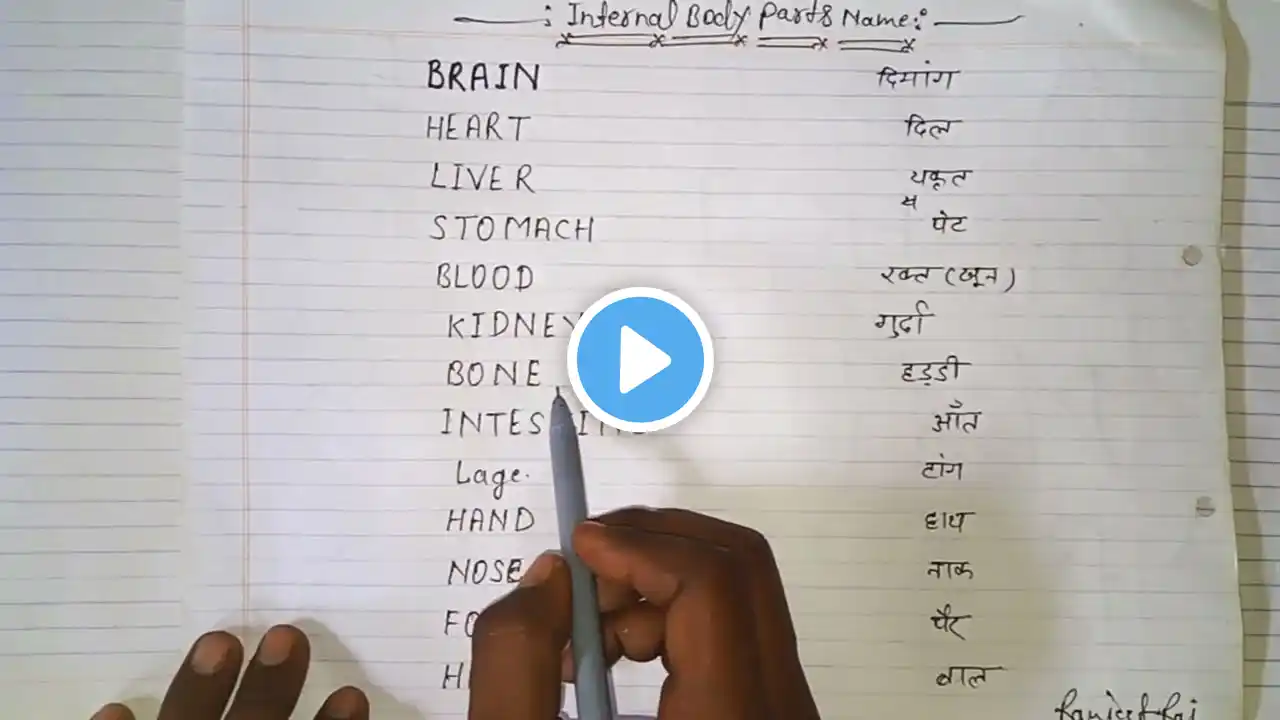 : Internal Body Parts Name:
BRAIN दिमांग
HEART दिल
LIVER यकृत
स
STOMACH पेट
BLOOD रक्त (खून)
KIDNEY गुर्दा
BONE हड्डी
आँत
Lage. टांग
HAND हाथ
NOSE नाक
पैर
बाल